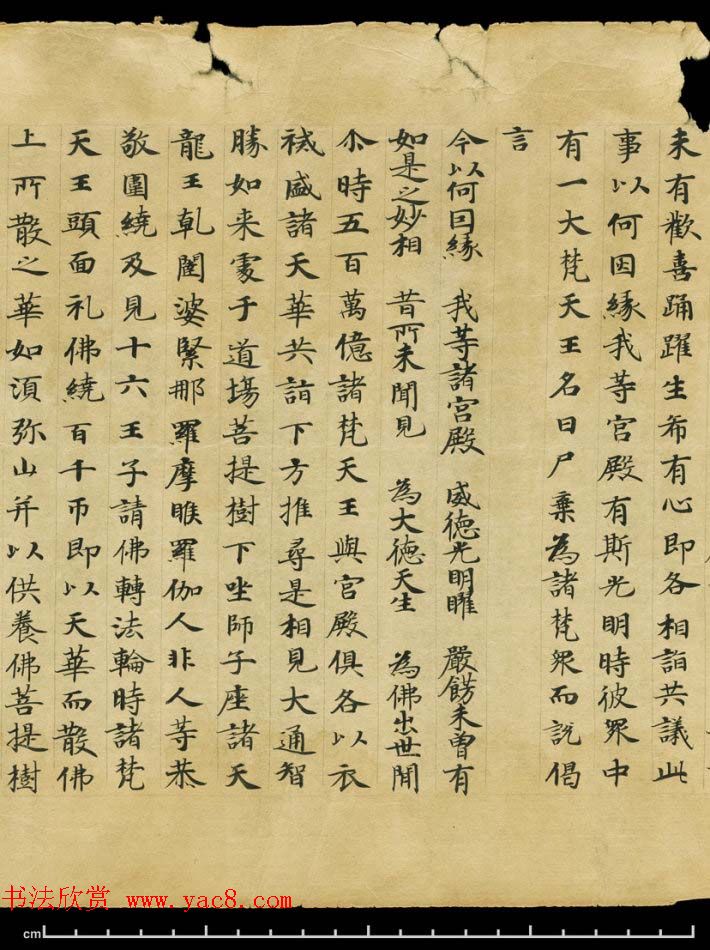 未有歡喜踊躍生希有心即各相詣共議此
事以何因緣我等宮殿有斯光明時彼眾中
有一大梵天王名曰尸棄為諸梵眾而說偈
言
今以何因緣 我等諸宮殿 威德光明曜 嚴餝未曾有
如是之妙相 昔所未聞見 為大德天生 為佛出世間
尒時五百萬億諸梵天王與宮殿俱各以衣
祴盛諸天華共詣下方推尋是相見大通智
勝如来處于道場菩提樹下坐師子座諸天
龍王乹闥婆緊那羅摩睺羅伽人非人等恭
敬圍繞及見十六王子請佛轉法輪時諸梵
天王頭面礼佛繞百千帀即以天華而散佛
上所散之華如湏弥山并以供養佛菩提樹
书法欣赏 www.yac8.com
cm